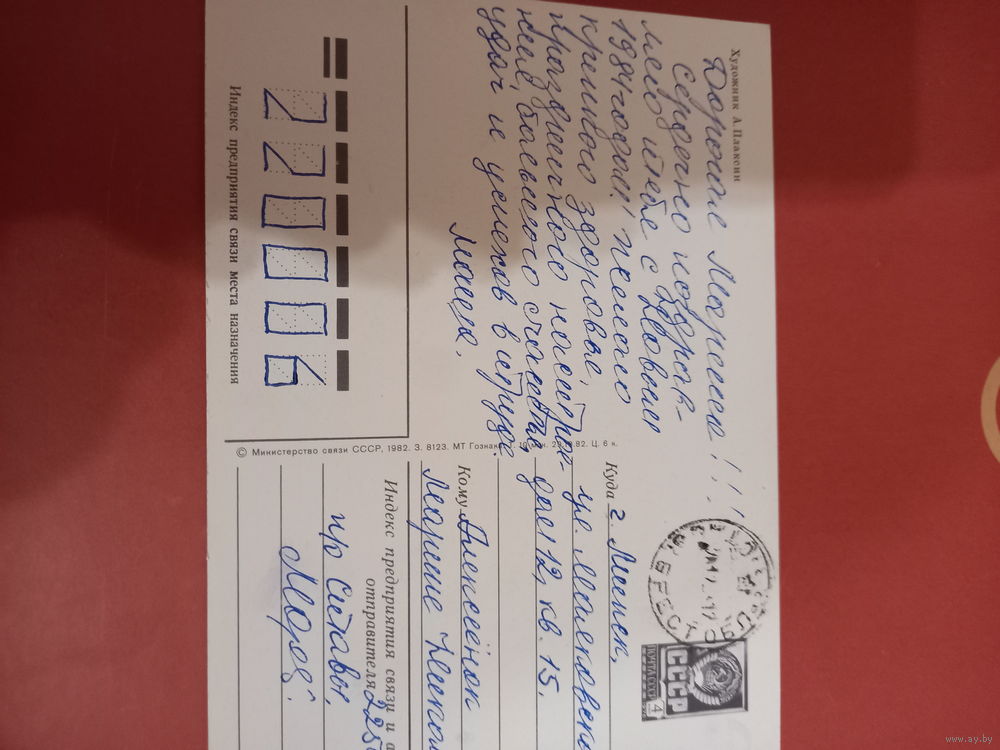 Художник А. Плаксин
Дорогая Марина!!!
Сердечно поздрав-
ляю тебя с Новым
1984 годом! Желаю
крепкого здоровья,
праздничного настрое-
ния, большого счастья,
удач и успехов в труде.
Маша.
Индекс предприятия связи места назначения
220006
© Министерство связи СССР, 1982. З. 8123. МТ Гознака. 10 млн. 82. Ц. 6 к.
Куда г. Минск,
ул. Маяковско
дом 12, кв. 15.
Кому Алексеёнок
Марине
Индекс предприятия связи и а
отправителя 225
пр
БРЕСТ
ПОЧТА СССР
СССР
4
www.ay.by